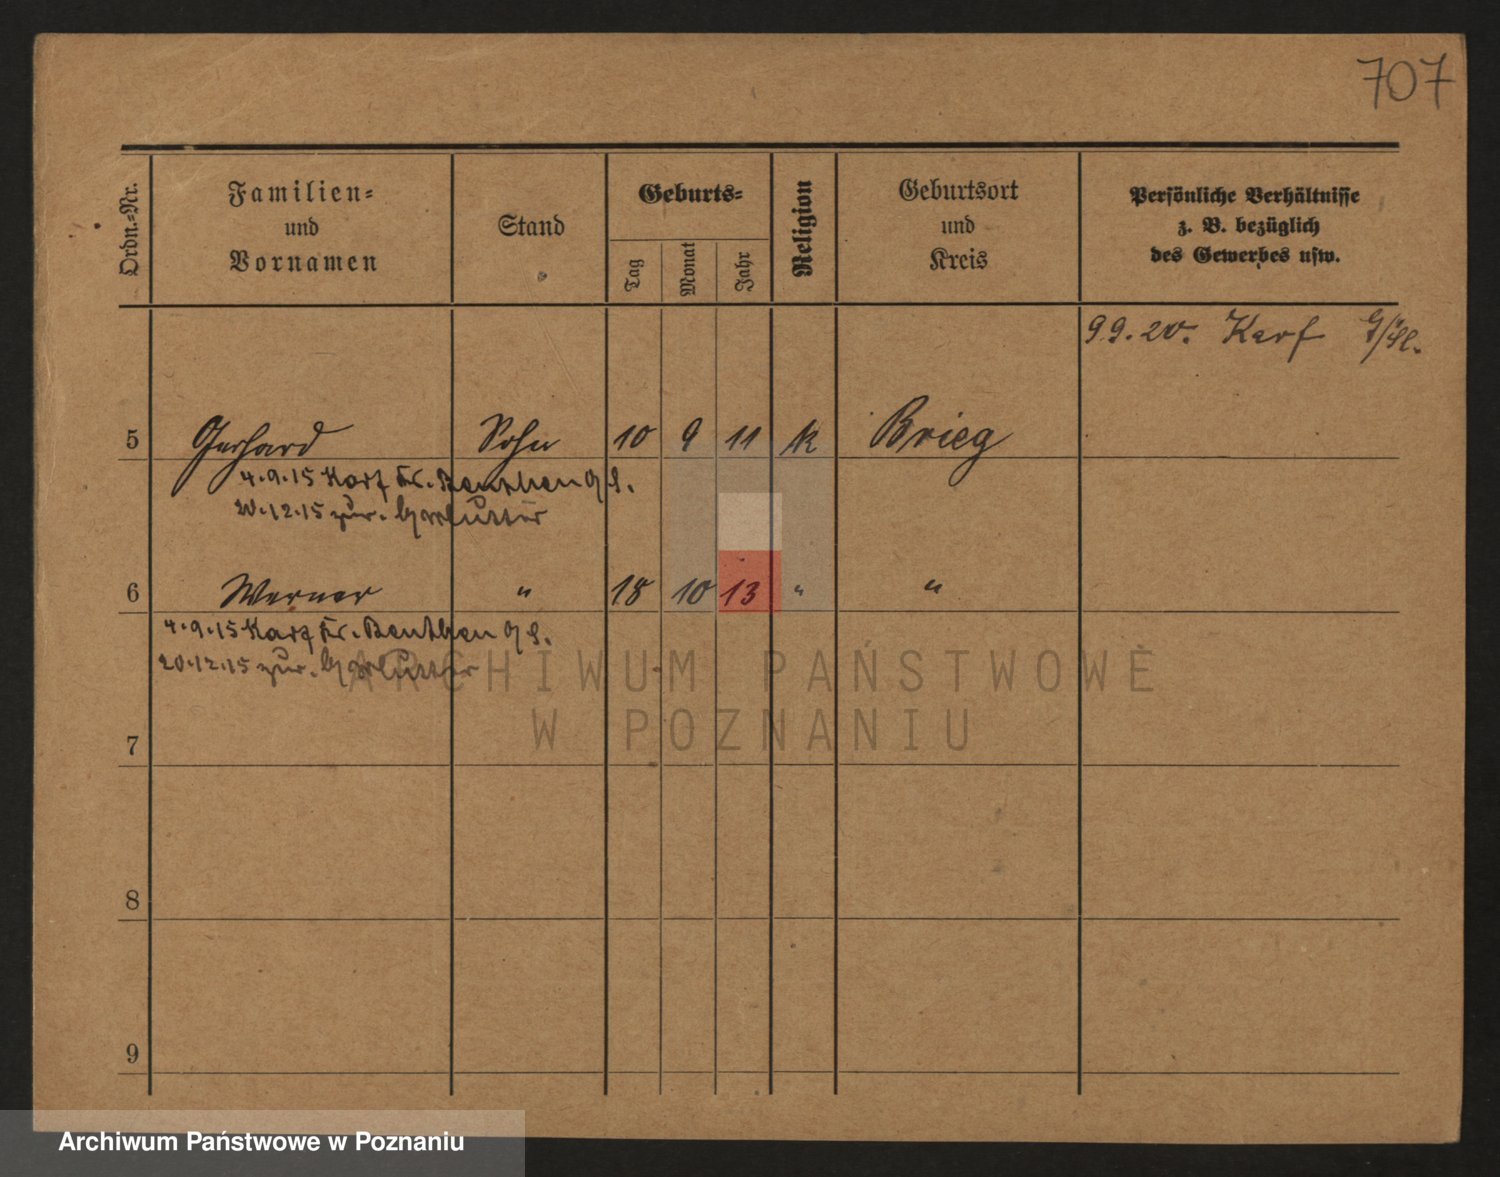 707
Ordn.-Nr.
Familien-
und
Vornamen
Stand
Geburts-
Tag
Monat
Jahr
Religion
Geburtsort
und
Kreis
Persönliche Verhältnisse
z. B. bezüglich
des Gewerbes usw.
9.9.20. Karf O/Sl.
5 Gerhard Sohn 10 9 11 k Brieg
4.9.15 Karf Kr. Beuthen O S.
20.12.15 zur.
6 Werner " 18 10 13 " "
4.9.15 Karf Kr. Beuthen O S.
20.12.15 zur.
ARCHIWUM PAŃSTWOWE
W POZNANIU
7
8
9
Archiwum Państwowe w Poznaniu